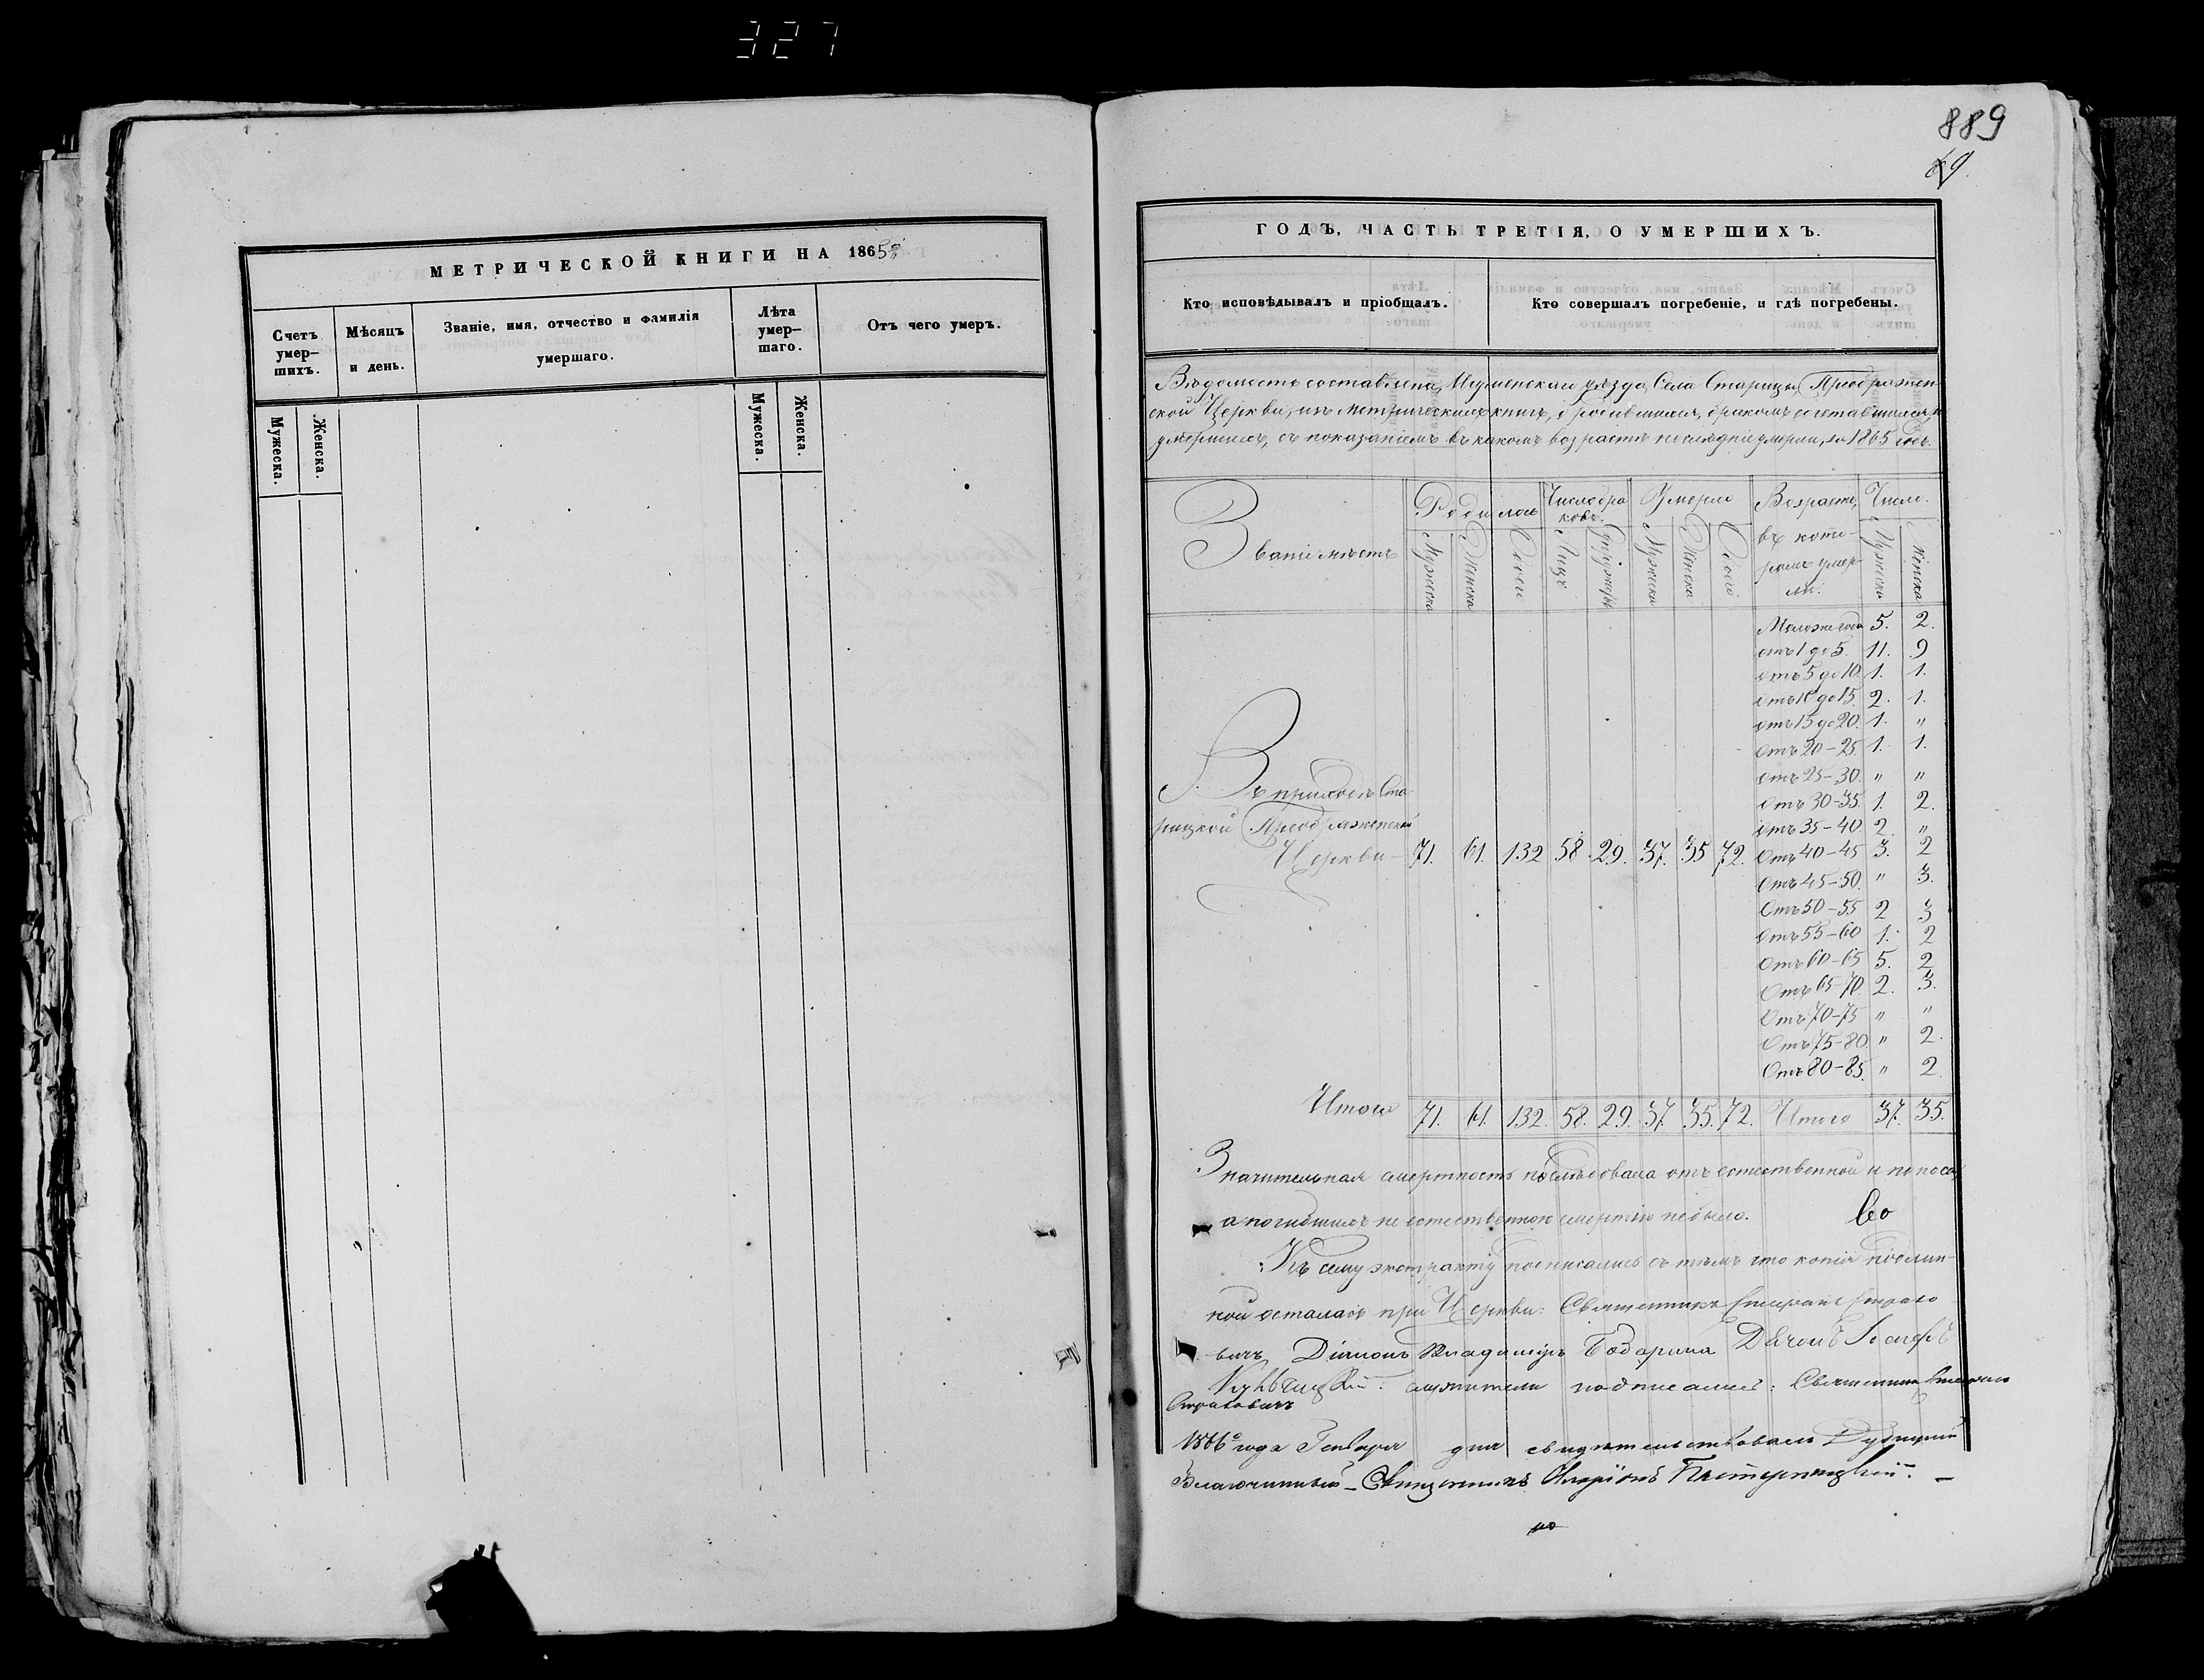 327
889
69.
МЕТРИЧЕСКОЙ КНИГИ НА 1865й
Счетъ умер-шихъ.
Мѣсяцъ и день.
Званіе, имя, отчество и фамилія умершаго.
Лѣта умер-шаго.
Отъ чего умеръ.
Мужеска.
Женска.
Мужеска.
Женска.
ГОДЪ, ЧАСТЬ ТРЕТІЯ, О УМЕРШИХЪ.
Кто исповѣдывалъ и пріобщалъ.
Кто совершалъ погребеніе, и гдѣ погребены.
Вѣдомость составлена, Игуменскаго уѣзда, Села Старицы, Преображен-
ской Церкви, изъ метрическихъ книгъ, о родившихся, бракомъ сочетавшихся, и
умершихъ, съ показаніемъ въ какомъ возрастѣ послѣдніе умерли, за 1865 годъ.
Званіе мѣстъ
Родилось
Число бра
ковъ.
Умерло
Возрастъ,
въ кото-
ромъ умер-
ли.
Число.
Мужеска Женска Обоего Лицъ Супружествъ Мужеска Женска Обоего Мужеска Женска
Моложе года 5. 2.
отъ 1 до 5. 11. 9
отъ 5 до 10. 1. 1.
отъ 10 до 15. 2. 1.
отъ 15 до 20. 1. "
Отъ 20-25. 1. 1.
Отъ 25-30. " "
Отъ 30-35. 1. 2.
Отъ 35-40. 2. "
Въ приходѣ Ста-
рицкой Преображенской
Церкви - 71. 61. 132 58. 29. 37. 35 72. Отъ 40-45 3. 2
Отъ 45-50. " 3.
Отъ 50-55 2 3
Отъ 55-60 1. 2
Отъ 60-65 5. 2
Отъ 65-70. 2. 3.
Отъ 70-75 " "
Отъ 75-80. " 2.
Отъ 80-85. " 2.
Итого 71. 61. 132. 58. 29. 37. 35. 72. Итого 37. 35.
Значительная смертность послѣдовала отъ естественной и поноса,
а погибшихъ не естественною смертію не было.
Къ сему экстракту подписались съ тѣмъ что копія подлин-
ной осталась при Церкви: Священникъ Стефанъ
вичъ Діаконъ Владиміръ Бодарина Дьячокъ
служители подписались: Священникъ Стефанъ
1866го года Генваря дня свидѣтельствовалъ
Благочинный - Священникъ